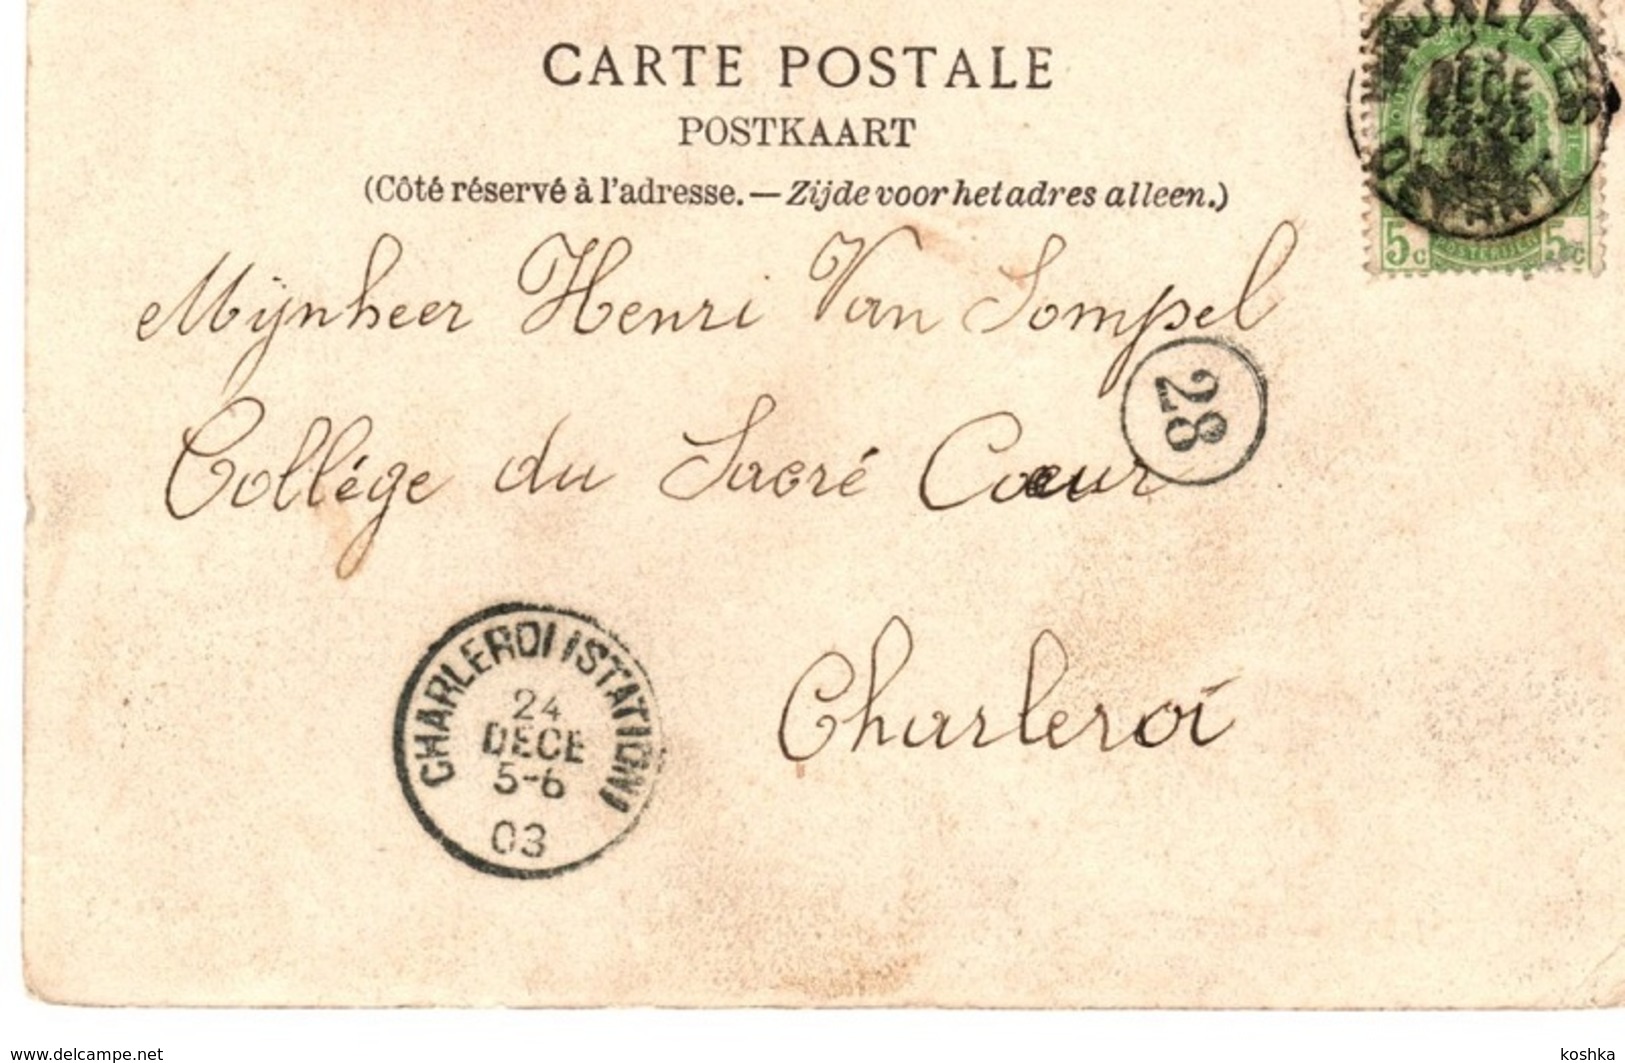 CARTE POSTALE
POSTKAART
(Côté réservé à l'adresse. — Zijde voor het adres alleen.)
BRUXELLES
DECE
5c POSTERIJEN 5c
Mijnheer Henri Van Sompel
28
Collége du Sacré Cœur
CHARLEROI (STATION)
24
DECE
5-6
03
Charleroi
www.delcampe.net
koshka